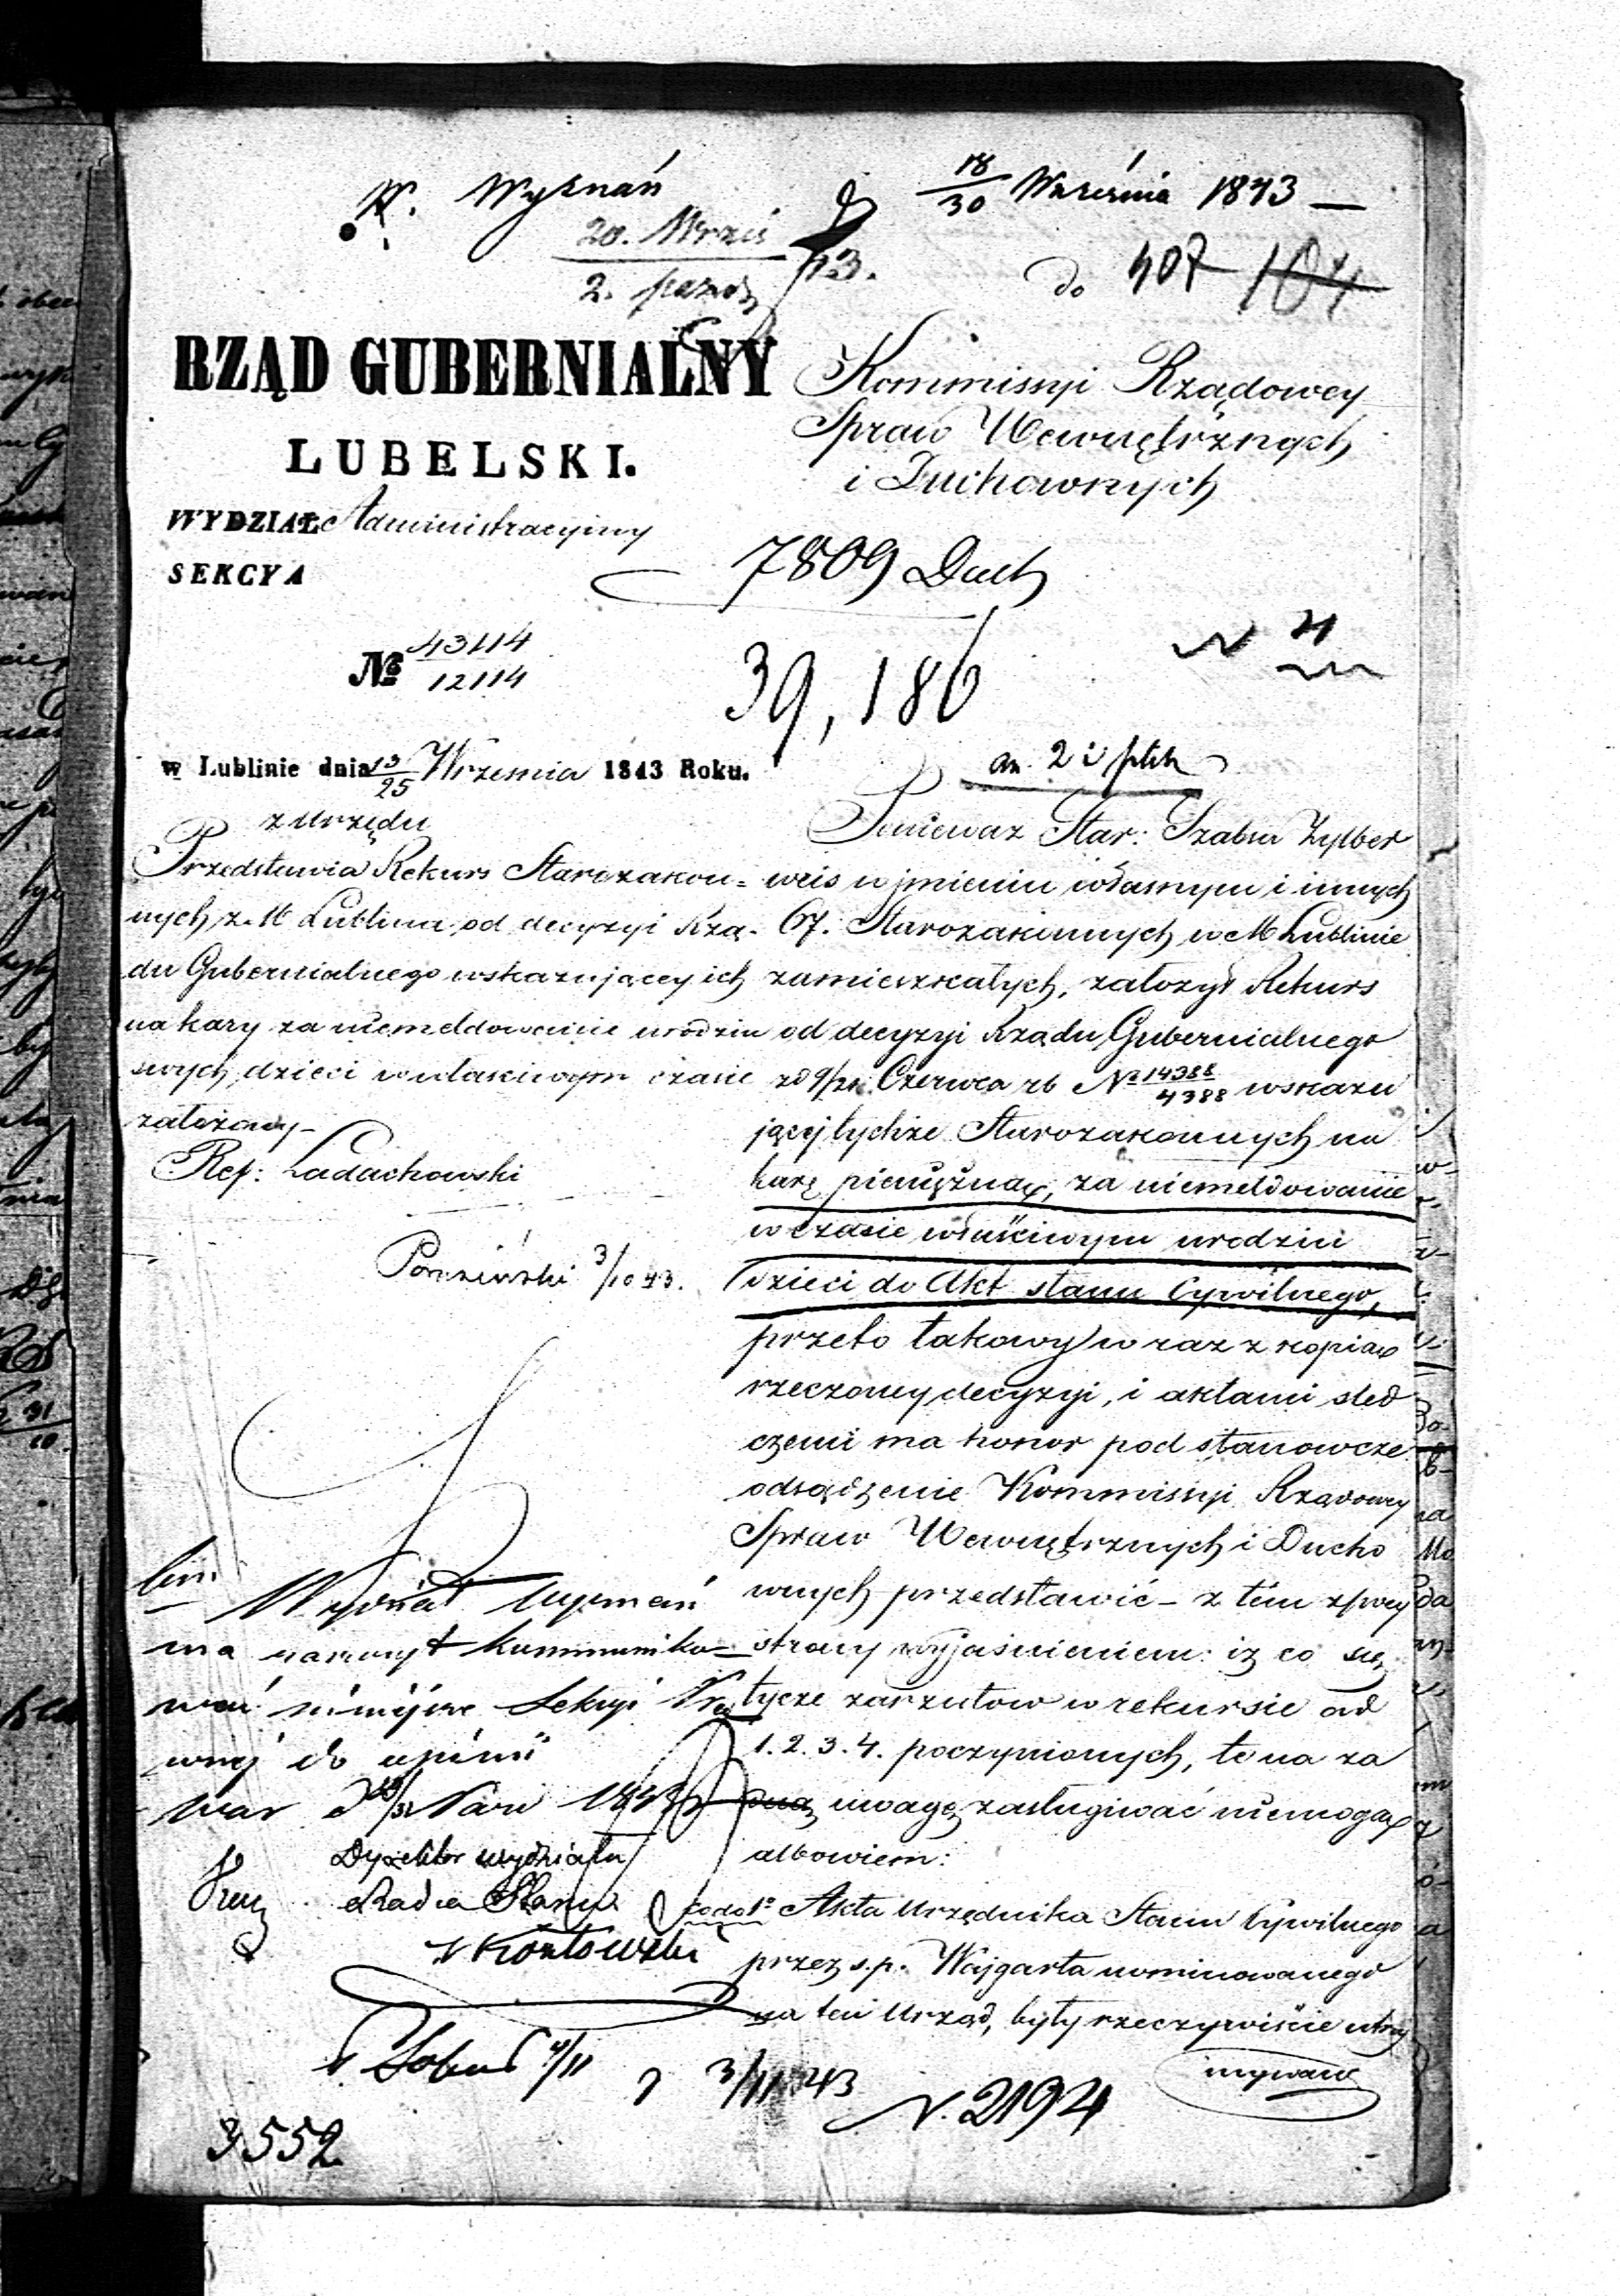 W. Wyznań
18/30 Września 1843
20. Wrześ
2. paźdz
do 407 104
RZĄD GUBERNIALNY
LUBELSKI.
WYDZIAŁ Administracyjny
SEKCYA
Kommissyi Rządowey
Spraw Wewnętrznych
i Duchownych
7809 Duch
№ 43114
12114
39,186
N 4
w Lublinie dnia 13/25 Września 1843 Roku.
z urzędu
Przedstawia Rekurs Starozakon=
nych z M Lublina od decyzyi Rzą-
du Gubernialnego wskazującey ich
na kary za niemeldowanie urodzin
swych dzieci w właściwym czasie
założony-
Ref: Ladachowski
3/10 43.
Wydział Wyznań
ma zaszczyt kommuniko=
wać niniejsze Sekcyi Pra
wnej do opinii
War 1843
Dyrektor wydziału
Radca Stanu
Kozłowski
4/11
3/11 843
N. 2194
3552
an. 2 i plik
Poniewaz Star: Szabsa Zylber
weis w jmieniu własnym i innych
67. Starozakonnych w M Lublinie
zamieszkałych, założył Rekurs
od decyzyi Rządu Gubernialnego
zd 9/21 Czerwca rb № 14388/4388 wskazu
jącej tychże Starozakonnych na
karę pieniężną, za niemeldowanie
w czasie właściwym urodzin
dzieci do Akt stanu Cywilnego,
przeto takowy w raz z kopią
rzeczoney decyzyi, i aktami sled
czemi ma honor pod stanowcze
odsądzenie Kommissyi Rządowey
Spraw Wewnętrznych i Ducho
wnych przedstawić - z tém z swey
strony wyjaśnieniem: iż co się
tycze zarzutow w rekursie ad
1. 2. 3. 4. poczynionych, te na za
dną uwagę zasługiwać niemogą
albowiem:
co do 1º Akta Urzędnika Stanu Cywilnego
przez s.p. Wajgarta nominowanego
na ten Urząd, były rzeczywiście utrzy
mywane